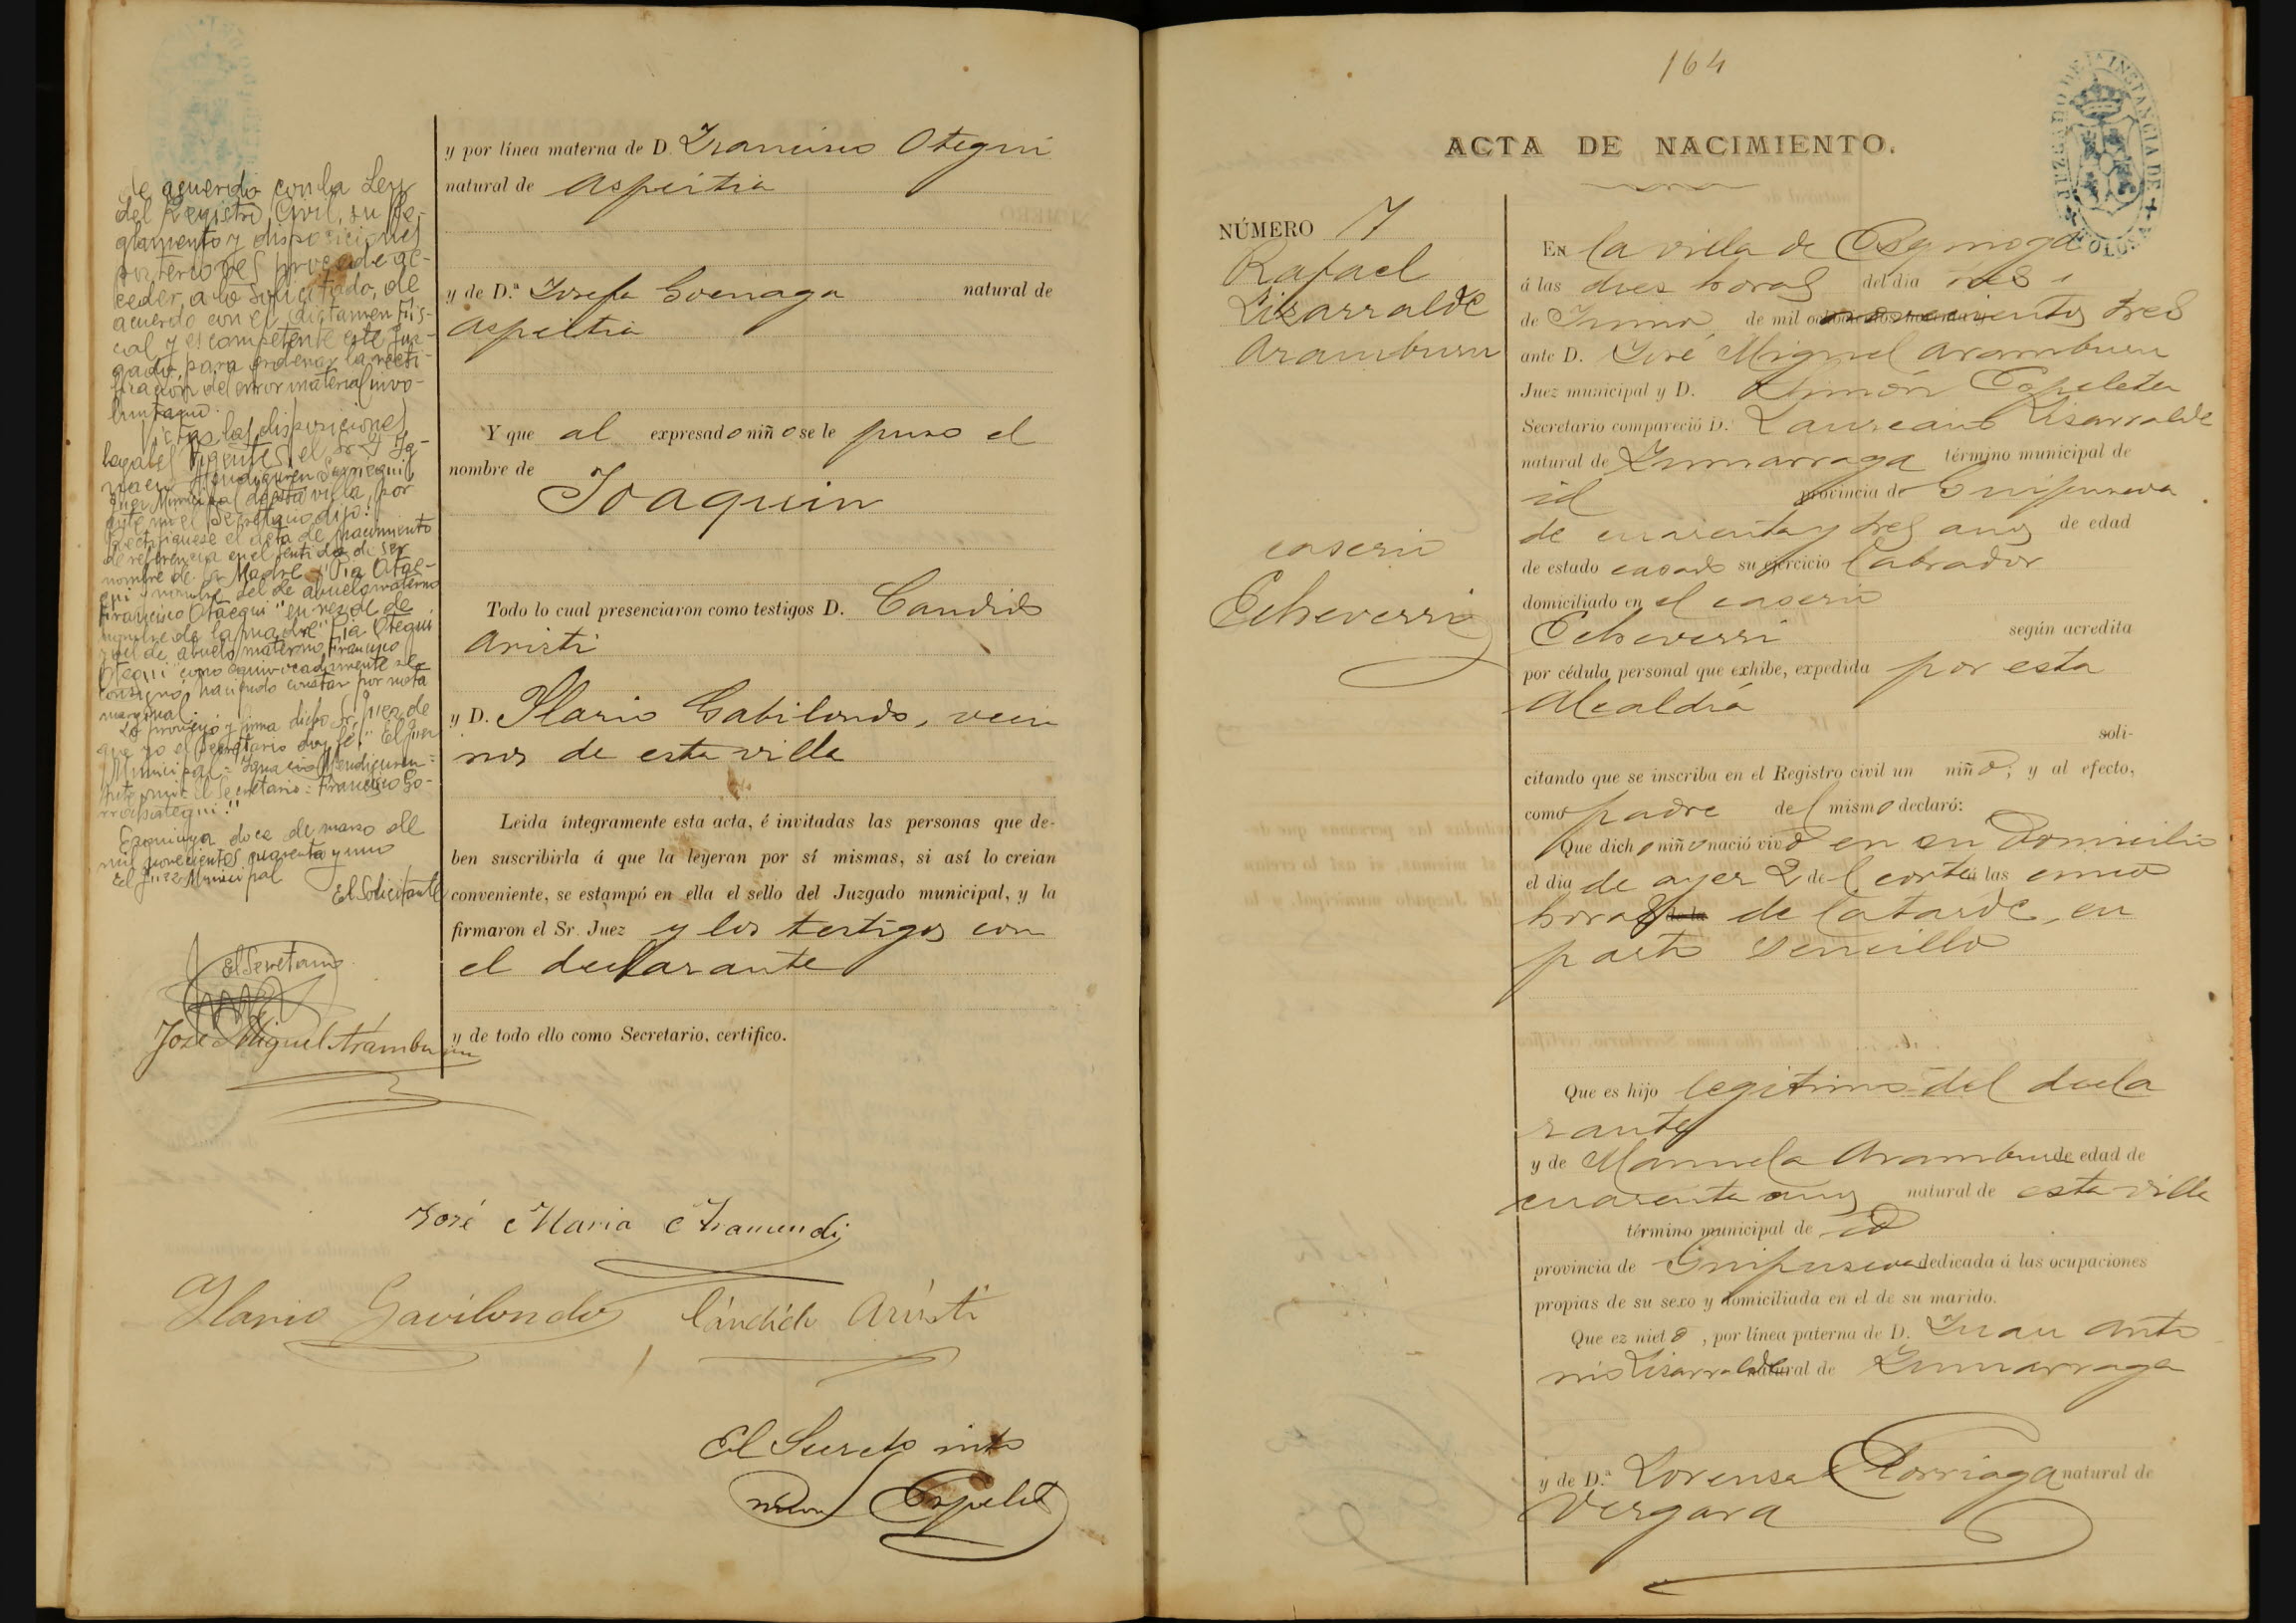 de acuerdo con la Ley
del Registro Civil, su Re-
glamento y disposiciones
posteriores procede ac-
ceder, a lo solicitado, de
acuerdo con el dictamen Fis-
cal y es competente este Juz-
gado, para ordenar la recti-
ficación del error material invo-
luntario.
Vistas las disposiciones
legales vigentes, el Sr D Ig-
nacio Mendiguren
Juez Municipal de esta villa, por
ante mi el Secretario dijo:
Rectifiquese el acta de nacimiento
de referencia en el sentido de ser
nombre de la Madre "Pia Otae-
gui y nombre del de abuelo materno
Francisco Otaegui" en vez de de
nombre de la madre "Pia Otegui
y del de abuelo materno Francisco
Otegui" como equivocadamente se
consignó, haciendo constar por nota
marginal.
Lo proveyó y firma dicho Sr. Juez de
que yo el Secretario doy fé." El Juez
Municipal = Ignacio Mendiguren =
Ante mi: el Secretario: Francisco Go-
Ezquioga doce de marzo de
mil novecientos cuarenta y uno
El Juez Municipal
El Solicitante
El Secretario
José Miguel Aramburu
y por línea materna de D. Francisco Otegui
natural de Aspeitia
y de D.ª Josefa Goenaga natural de
Aspeitia
Y que al expresado niño se le puso el
nombre de
Joaquin
Todo lo cual presenciaron como testigos D. Candido
Aristi
y D. Ilario Gabilondo, veci
nos de esta villa
Leida íntegramente esta acta, é invitadas las personas que de-
ben suscribirla á que la leyeran por sí mismas, si así lo creian
conveniente, se estampó en ella el sello del Juzgado municipal, y la
firmaron el Sr. Juez y los testigos con
el declarante
y de todo ello como Secretario, certifico.
José Maria Aramendi
Ilario Gavilondo Cándido Aristi
El Secreto into
Espeleta
164
JUZGADO DE 1ª INSTANCIA DE TOLOSA
ACTA DE NACIMIENTO.
NÚMERO 7
Rafael
Lizarralde
Aramburu
caserio
Echeverri
En la villa de Ezquioga
á las dies horas del dia tres
de Junio de mil novecientos tres
ante D. José Miguel Aramburu
Juez municipal y D. Simón Espeleta
Secretario compareció D. Laureano Lisarralde
natural de Zumarraga término municipal de
id provincia de Guipuscoa
de cuarenta y tres años de edad
de estado casado su ejercicio labrador
domiciliado en el caserio
Echeverri según acredita
por cédula personal que exhibe, expedida por esta
Alcaldía
soli-
citando que se inscriba en el Registro civil un niño; y al efecto,
como padre del mismo declaró:
Que dicho niño nació vivo en su domicilio
el dia de ayer 2 del corte á las cinco
horas de la de la tarde, en
parto sencillo
Que es hijo legitimo del decla
rante
y de Manuela Aramburu de edad de
cuarenta años natural de esta villa
término municipal de id
provincia de Guipuscoa dedicada á las ocupaciones
propias de su sexo y domiciliada en el de su marido.
Que ez nieto, por línea paterna de D. Juan Anto
nio Lisarralde natural de Zumarraga
y de D.ª Lorensa Elorriaga natural de
Vergara